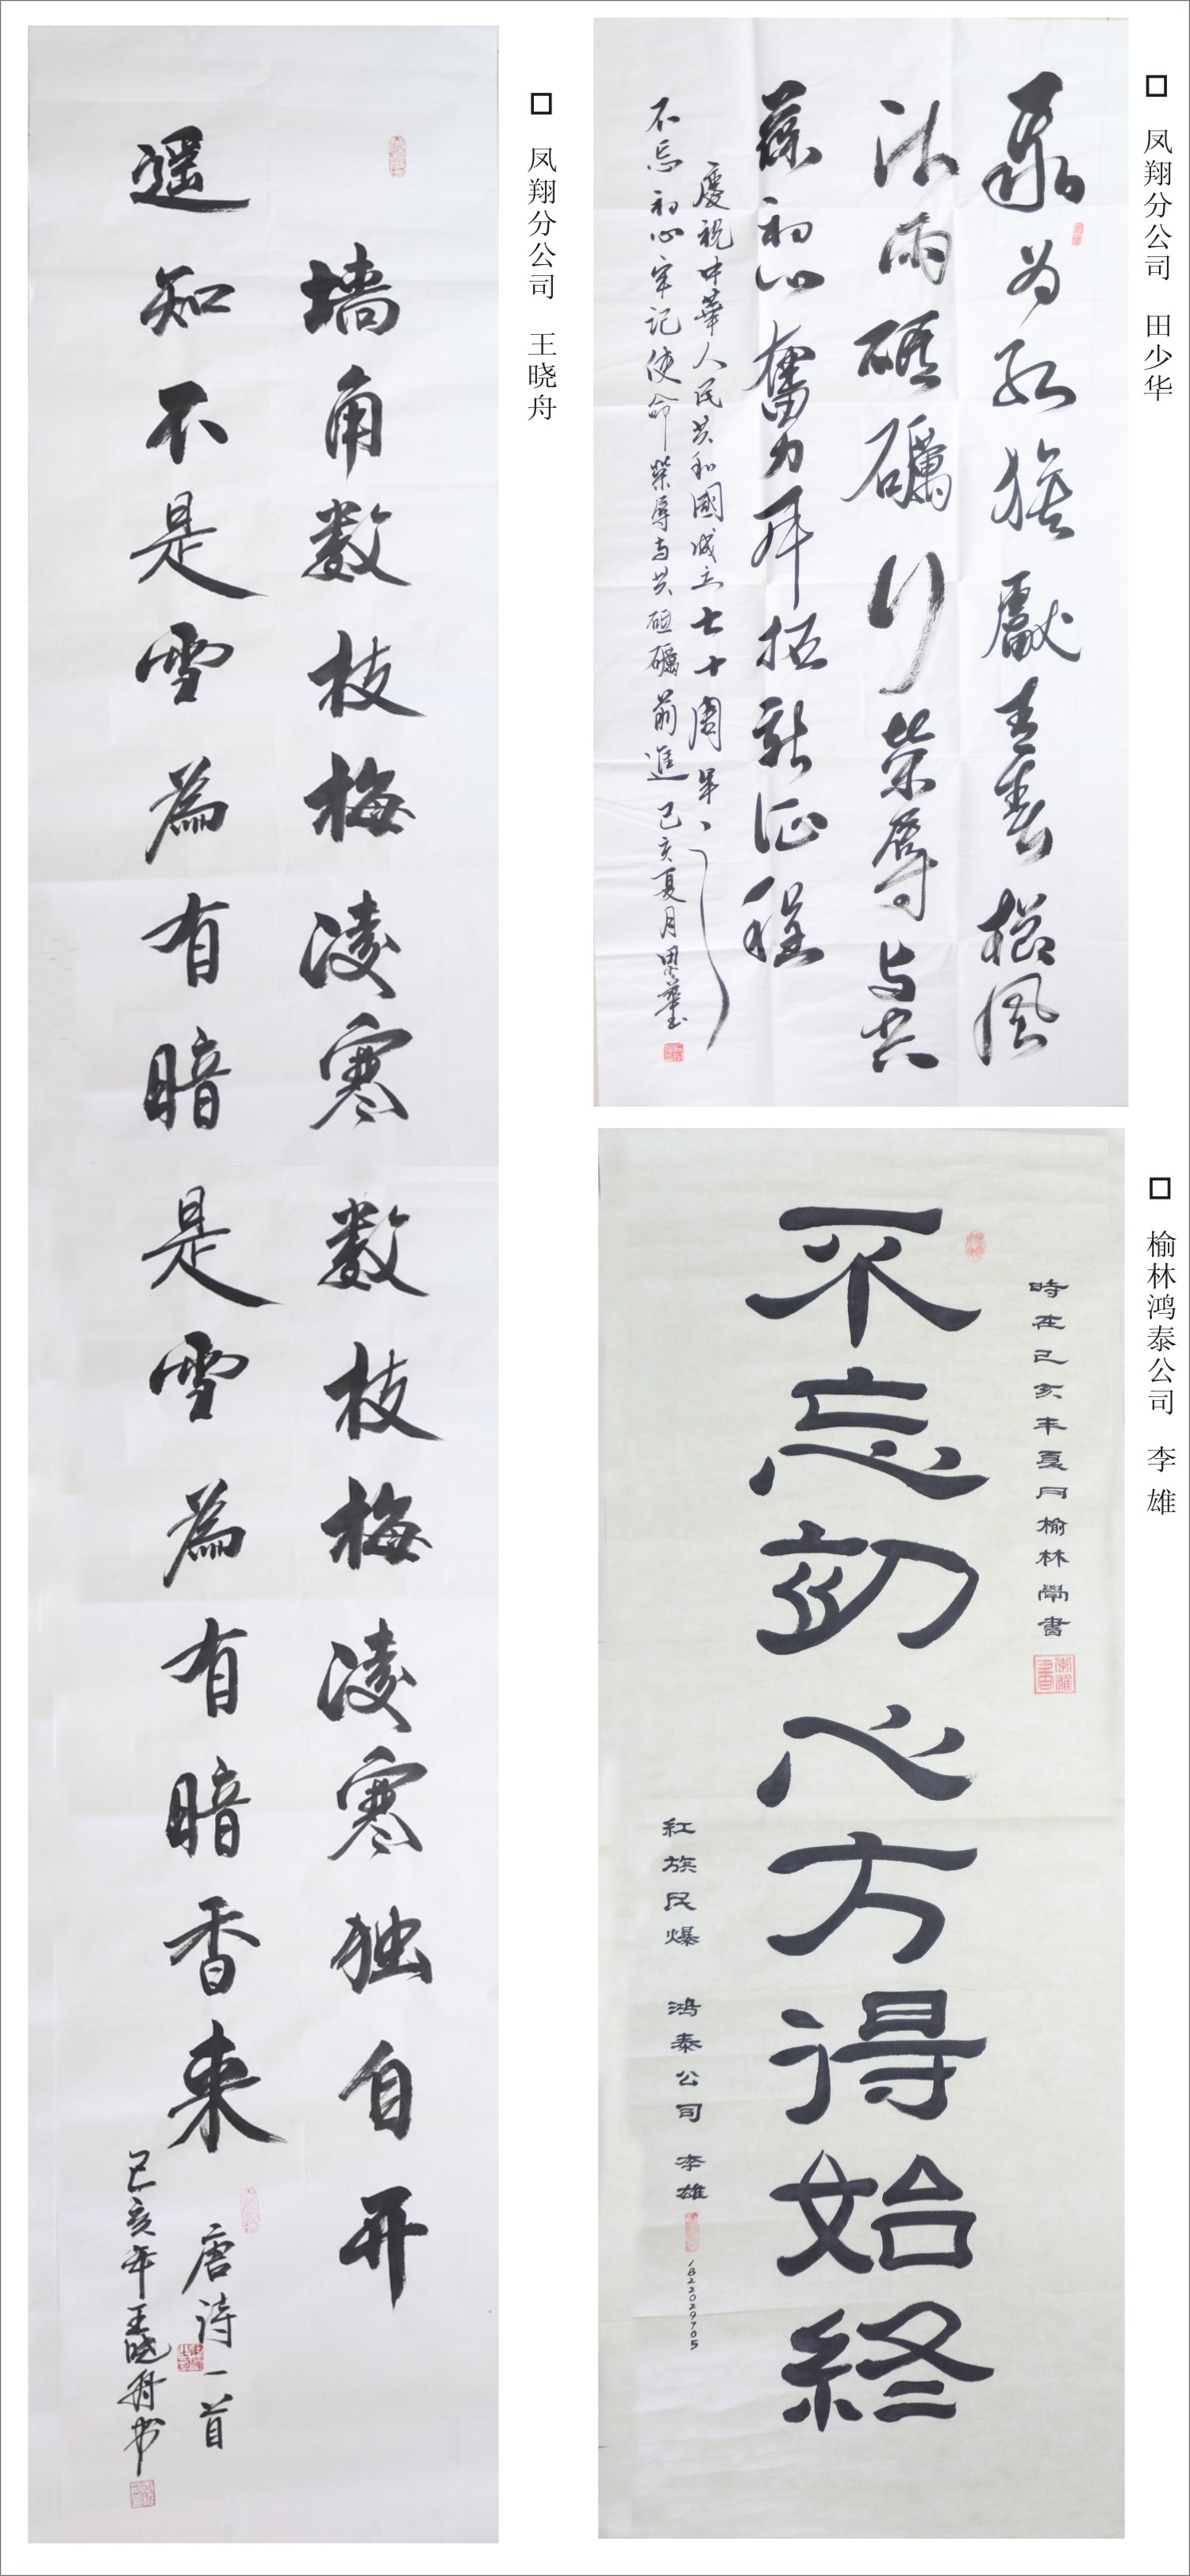 凤翔分公司 田少华
聚为红旗献青春栉风
沐雨砥砺行荣辱与共
葆初心奋力再拓新征程
慶祝中華人民共和國成立七十周年
不忘初心牢记使命榮辱与共砥礪前進己亥夏月
凤翔分公司 王晓舟
墙角数枝梅凌寒数枝梅凌寒独自开
遥知不是雪為有暗是雪為有暗香来
唐诗一首
己亥年王晓舟书
榆林鸿泰公司 李雄
時在己亥年夏月榆林學書
不忘初心方得始終
紅旗民爆 鸿泰公司 李雄
1822029705